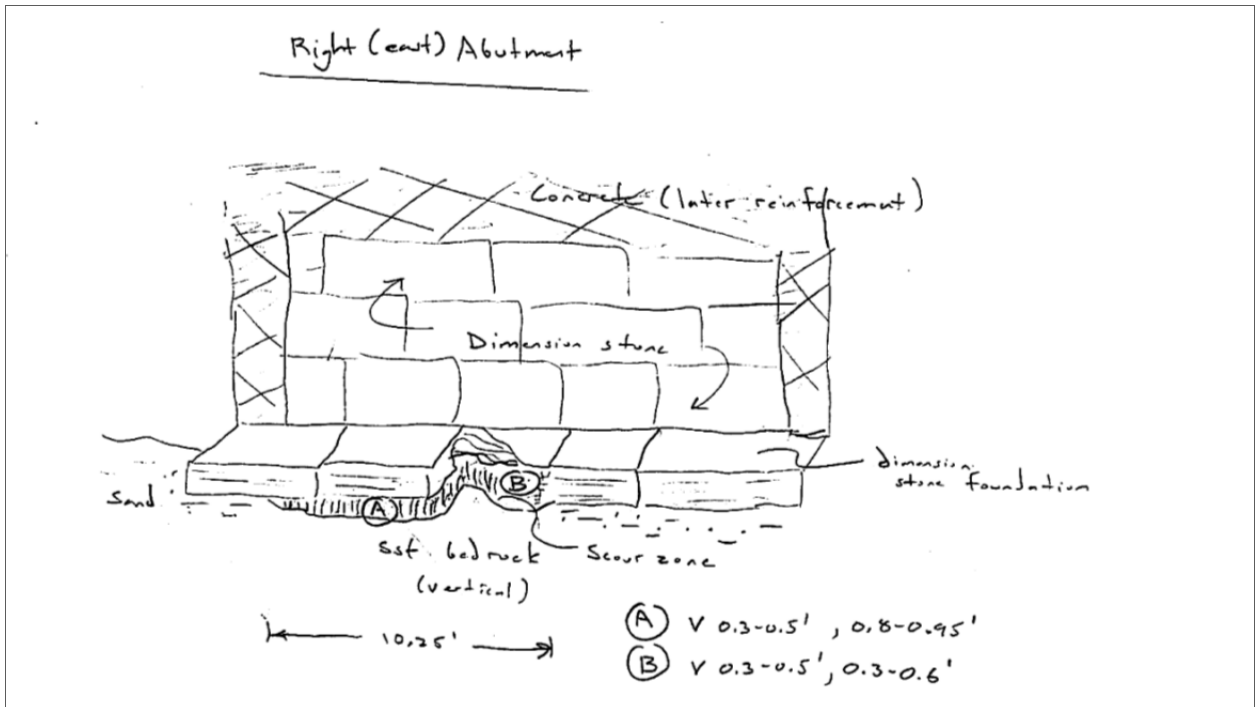 Right (east) Abutment
Concrete (later reinforcement)
Dimension stone
dimension
stone foundation
Sand
B
A
Sst. bedrock
(vertical)
Scour zone
10.25'
A V 0.3-0.5', 0.8-0.95'
B V 0.3-0.5', 0.3-0.6'